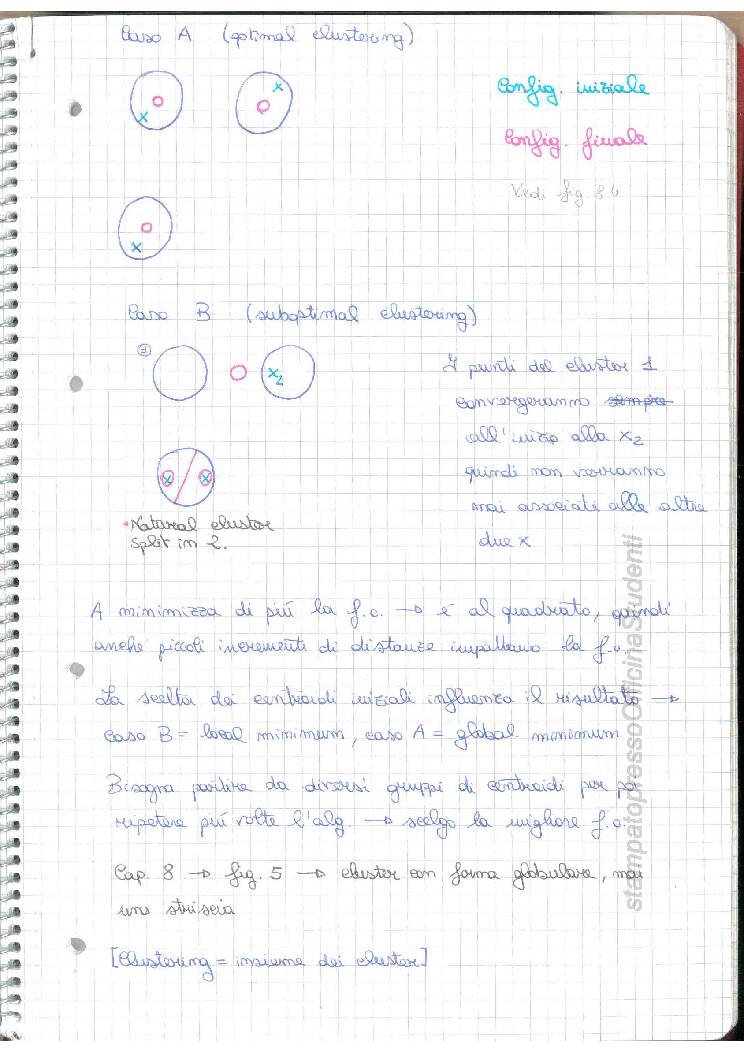 Caso A (optimal clustering)
x
x
Config. iniziale
Config. finale
Vedi fig 8.4
x
Caso B (suboptimal clustering)
1
x2
I punti del cluster 1
convergeranno sempre
all'inizio alla x2
quindi non verranno
mai associati alle altre
due x
x
x
• Natural cluster
split in 2.
A minimizza di più la f.o. → è al quadrato, quindi
anche piccoli incrementi di distanze impattano la f.o.
La scelta dei centroidi iniziali influenza il risultato →
caso B = local minimum, caso A = global minimum
Bisogna partire da diversi gruppi di centroidi per poi
ripetere più volte l'alg. → scelgo la migliore f.o.
Cap. 8 → fig. 5 → cluster con forma globulare, mai
una striscia
[Clustering = insieme dei cluster]
stampatopressoOfficinaStudenti